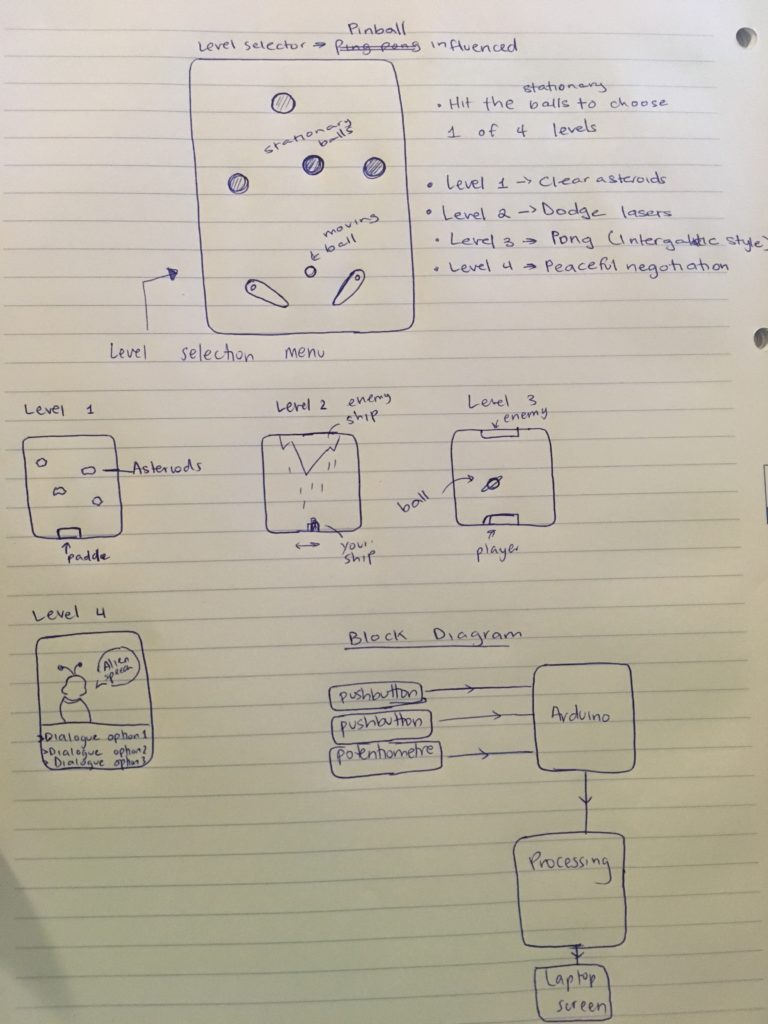 Pinball
Level selector → Ping pong influenced
stationary
• Hit the balls to choose
1 of 4 levels
stationary
balls
• Level 1 → Clear asteroids
• Level 2 → Dodge lasers
• Level 3 → Pong (Intergalactic style)
• Level 4 → Peaceful negotiation
moving
ball
Level selection menu
Level 1
Asteroids
paddle
Level 2
enemy
ship
your
ship
Level 3
enemy
ball
player
Level 4
Alien
speech
>Dialogue option 1
>Dialogue option 2
> Dialogue option 3
Block Diagram
pushbutton
pushbutton
potentiometre
Arduino
Processing
Laptop
screen